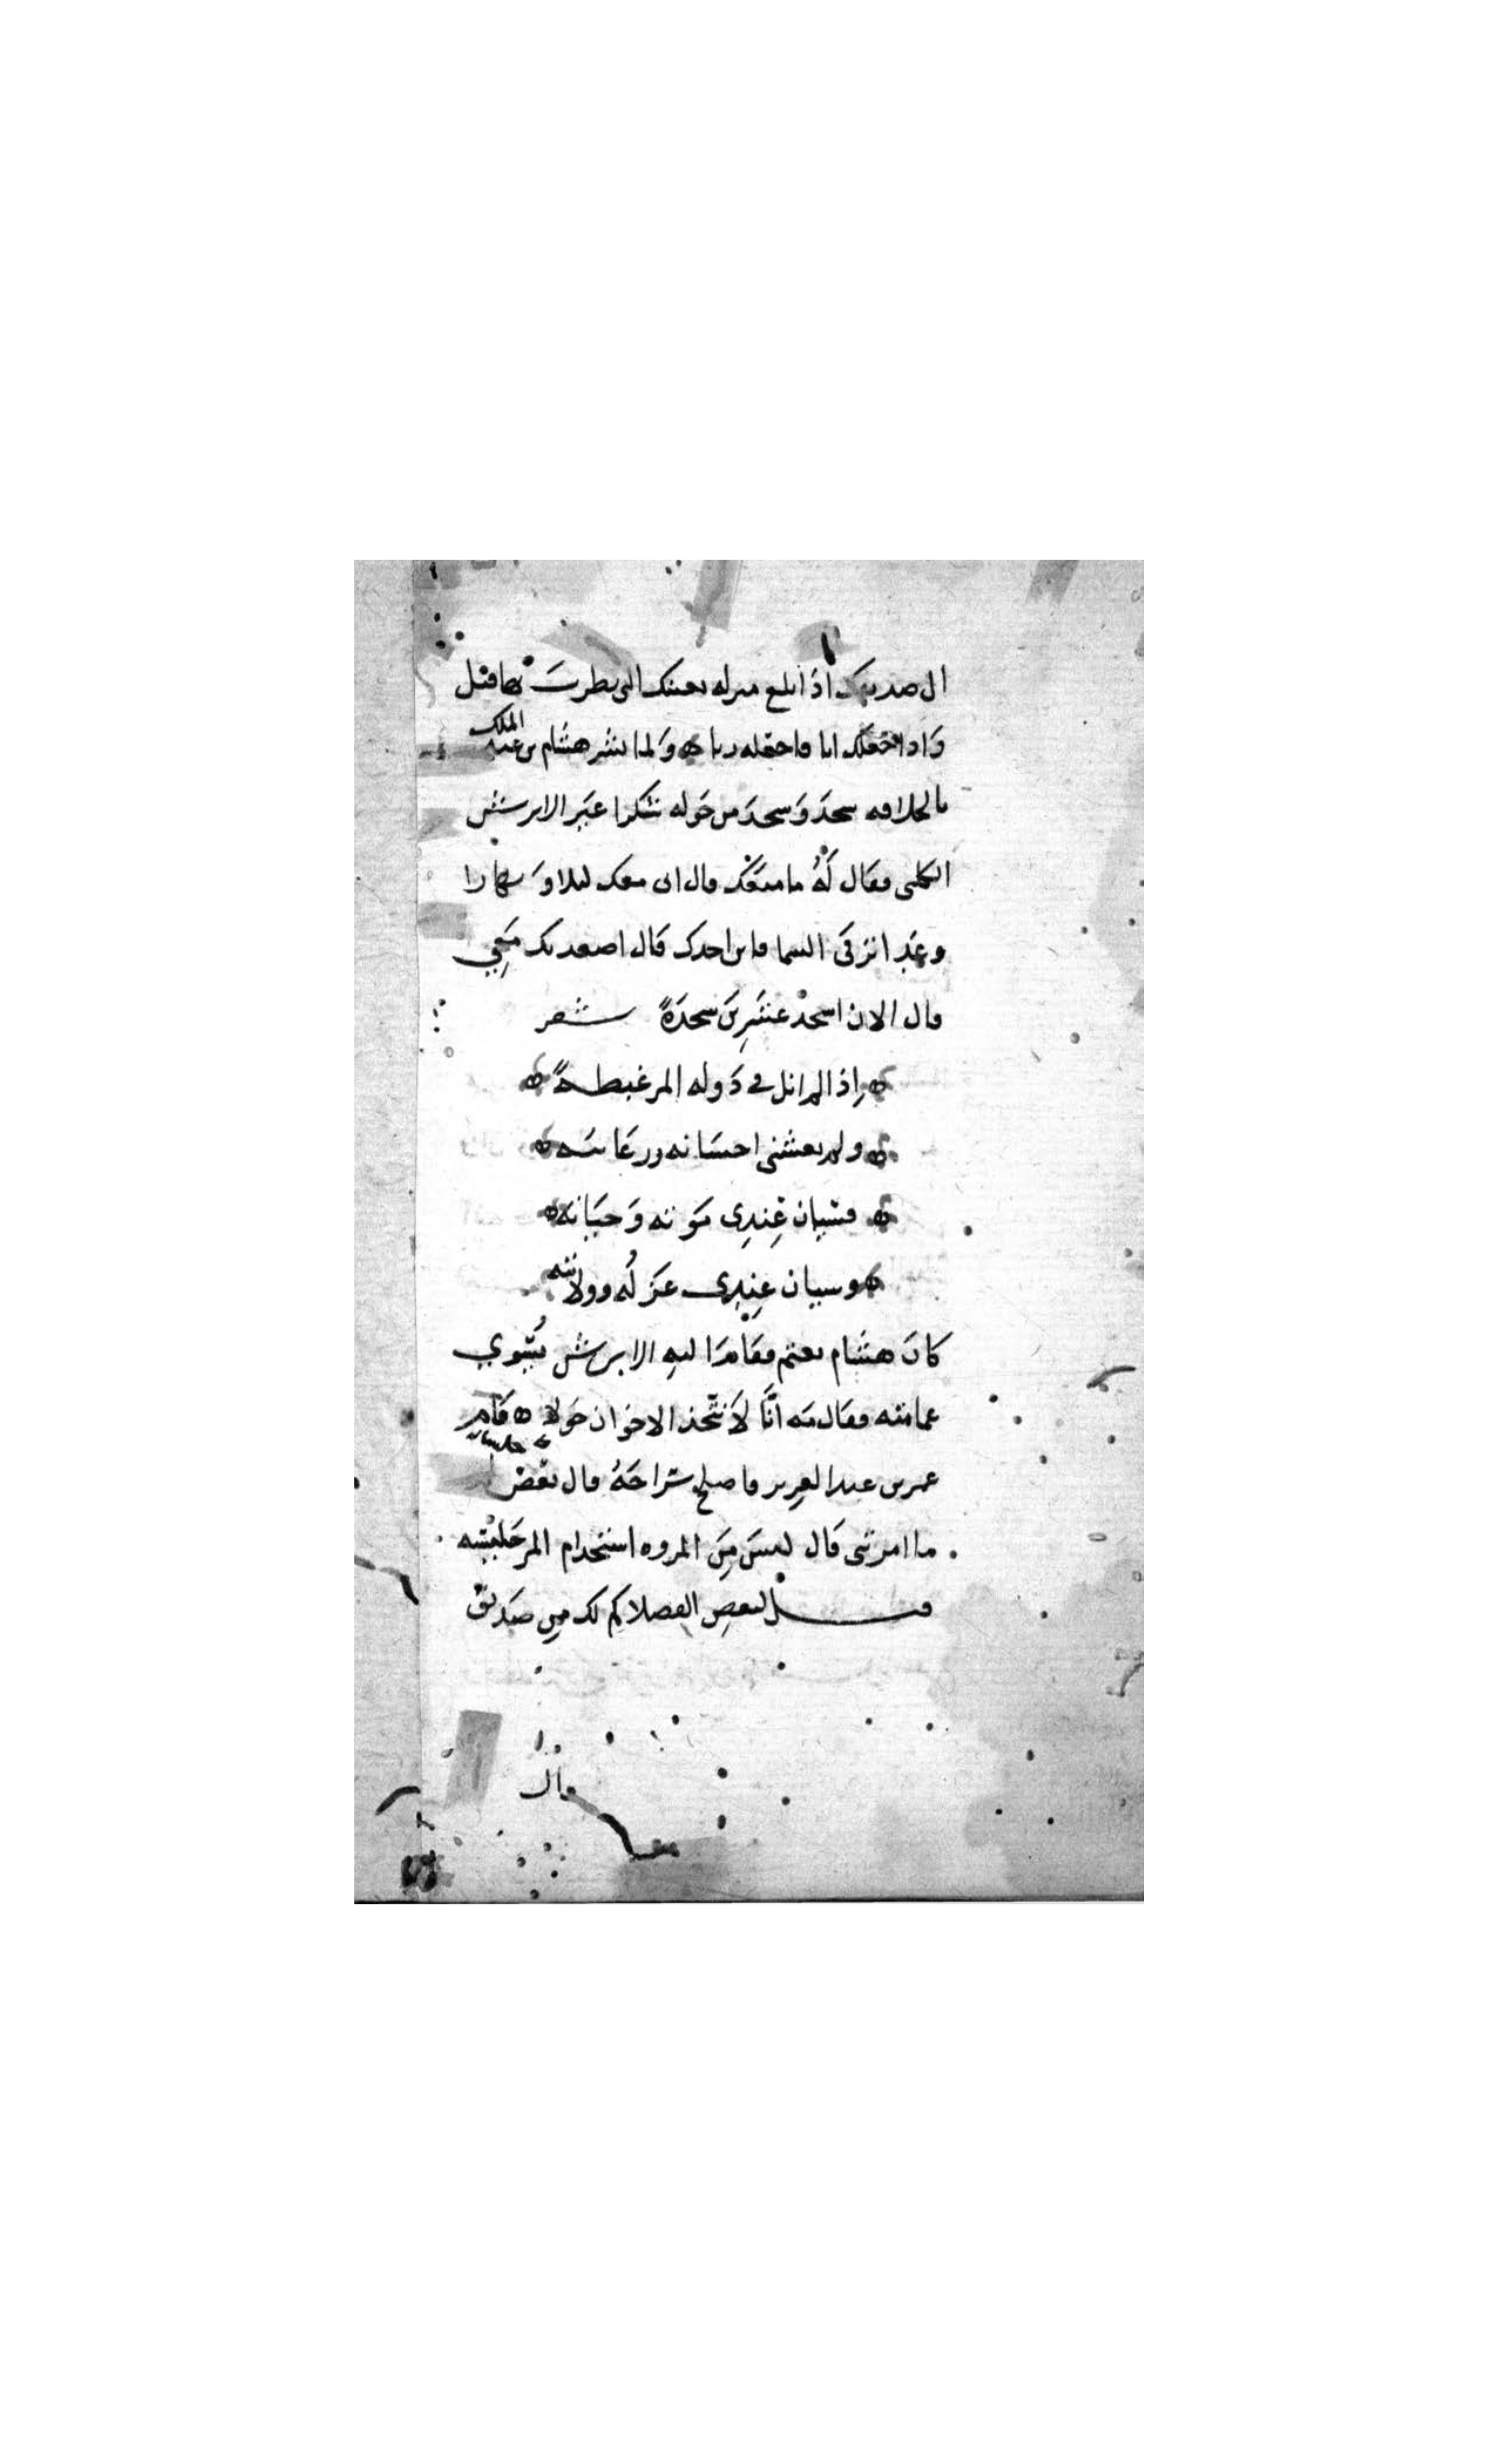 الى صديقك اذا بلغ منزله بعينك التى نظرت بها قبل
وَاذا جعلك ابا فاجعله ربا ه وَلما بشر هشام بن عبد الملك
بالخلافه سجدَ وَسجدَ من حَوله شكرا غيَر الابرش
الكلبى فقال لَهُ ما منعَك قال انى معك ليلا وَ نهارا
وغدا تركى السما فاين اجدك قال اصعد بك معِي
قال الان اسجدْ عشَرِينَ سجدَةً شعر
ه اِذا لم انل فى دَوله المرء غبطةً ه
ه ولم يغشنى احسَانه ورعَايته ه
ه فسيان عِندِى مَوته وَحيَاته ه
ه وسيان عِندِى عَزلُه وولايته
كانَ هشام يعتم فقامَ اليهِ الابرش يُسَوي
عمامته فقال مَه اِنَّا لاَ نتَّخذ الاخوان خَولا ه قَام
عمر بن عبد العزيز فاصلح سَراجَهُ قال بَعْض جلسائه
ما امرتنى قال ليسَ مِنَ المروه استخدام المرء جَليسَه
قيل لبعضِ الفضلا كم لك مِن صَديق
قال